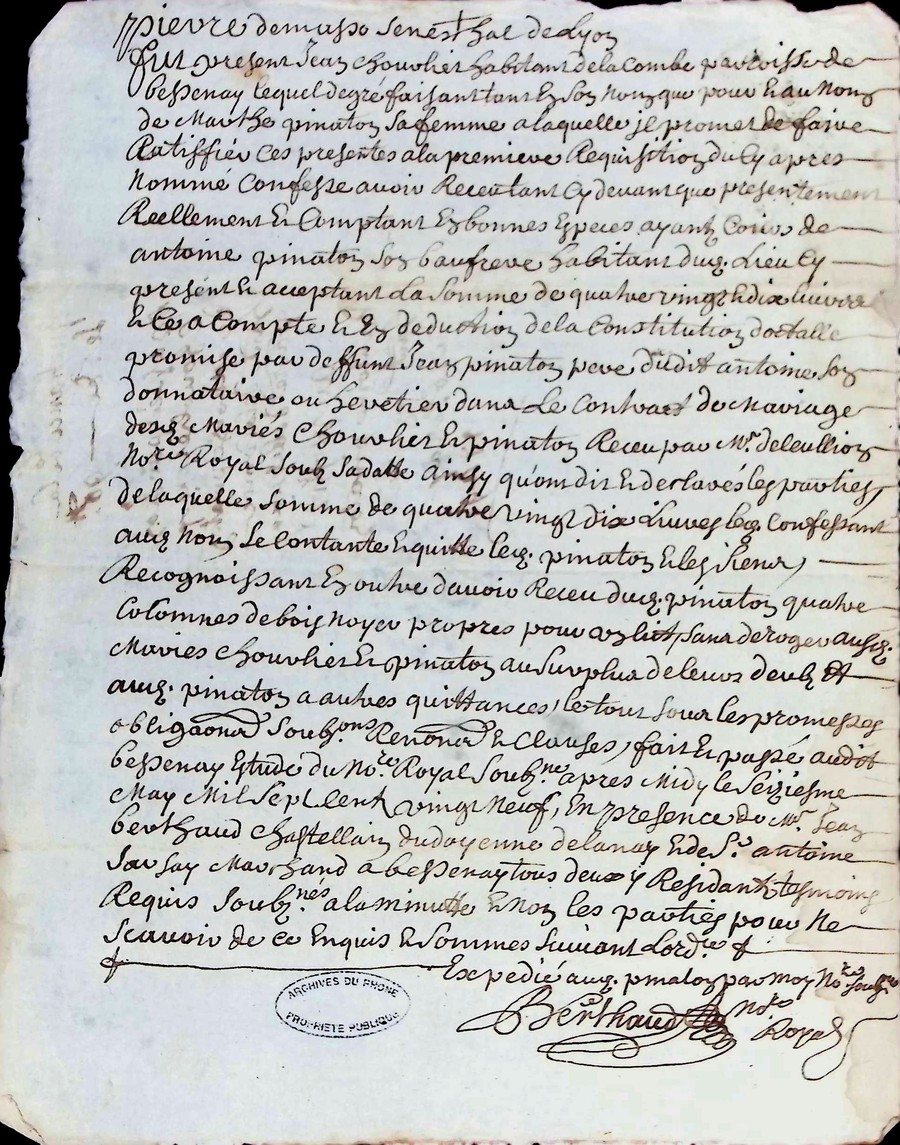 pierre demasso seneschal de Lyon
fut present Jean chouvlier habitant de la Combe parroisse de
bessenay lequel degré faisant tant En son Nom que pour Et au Nom
de Marthe pinaton sa femme a laquelle jl promet de faire
Ratiffier Ces presentes a la premiere Requisition du Cy apres
Nommé Confesse avoir Receu tant Cy devant que presentement
Reellement Et Comptant En bonnes Especes ayant Cours de
antoine pinaton son baufrere habitant dud. Lieu Cy
present Et acceptant La somme de quatre vingt Et dix Livres
Et Ce a Compte Et En deduction de la Constitution dottalle
promise par deffunt Jean pinaton pere dudit antoine son
donnataire ou heretier dans Le Contract de Mariage
desd. Mariés chouvlier Et pinaton Receu par Me. deleullion
No.re Royal Soub Sa datte Ainsy qu'ont dit Et declarés les parties
de laquelle somme de quatre vingt dix Livres led. Confessant
aud. Nom Se Contante Et quitte led. pinaton Et les siens
Recognoissant En outre d'avoir Receu dud. pinaton quatre
Colomnes de bois Noyer propres pour un lict, sans deroger ausd.
Mariés chouvlier Et pinaton au Surplus de leurs deub Et
aud. pinaton a autres quittances, le tout sous les promesses
obliga͠ons Soub.ons Renon͠a Et Clauses, fait Et passé audit
bessenay Estude du No.re Royal Soub.né apres Midy le Seiziesme
May Mil Sept Cent vingt Neuf, En presence de Me. Jean
berthaud Chastellain du doyenne de lanay Et de S.r antoine
Marchand a bessenay tous deux y Residants tesmoins
Requis Soub.nés a la minutte Et Non les parties pour Ne
Scavoir de ce Enquis Et Sommes Suivant Lord.ce
Expedié aud. pinaton par Moy No.re Soub.né
Berthaud No.re
Royal
ARCHIVES DU RHONE
PROPRIÉTÉ PUBLIQUE